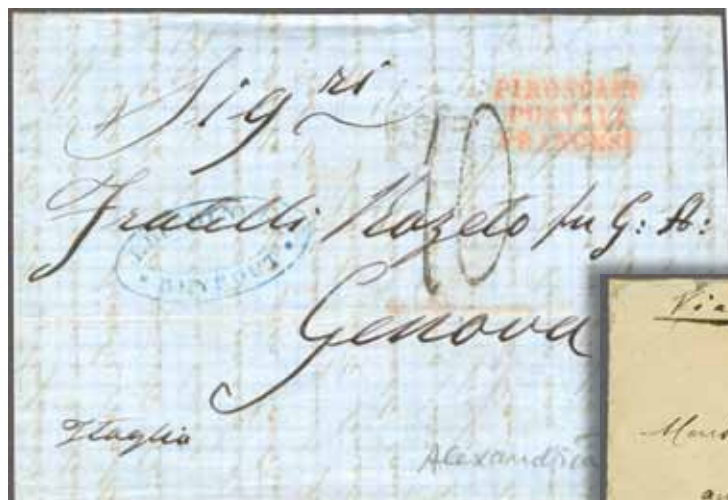 Sigri
PIROSCAFI
POSTALI
FRANCESI
10
Fratelli Rozeto fu G: A:
Genova
Italia
Alexandria
Via